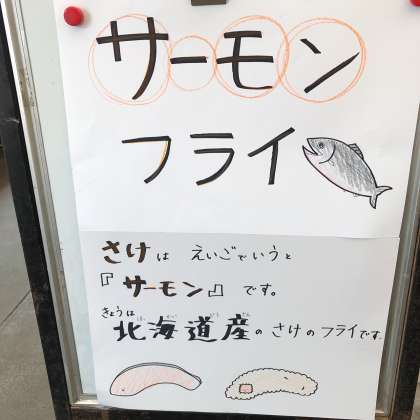 サーモン
フライ
さけは えいごでいうと
『サーモン』です。
きょうは
北海道産のさけのフライです。